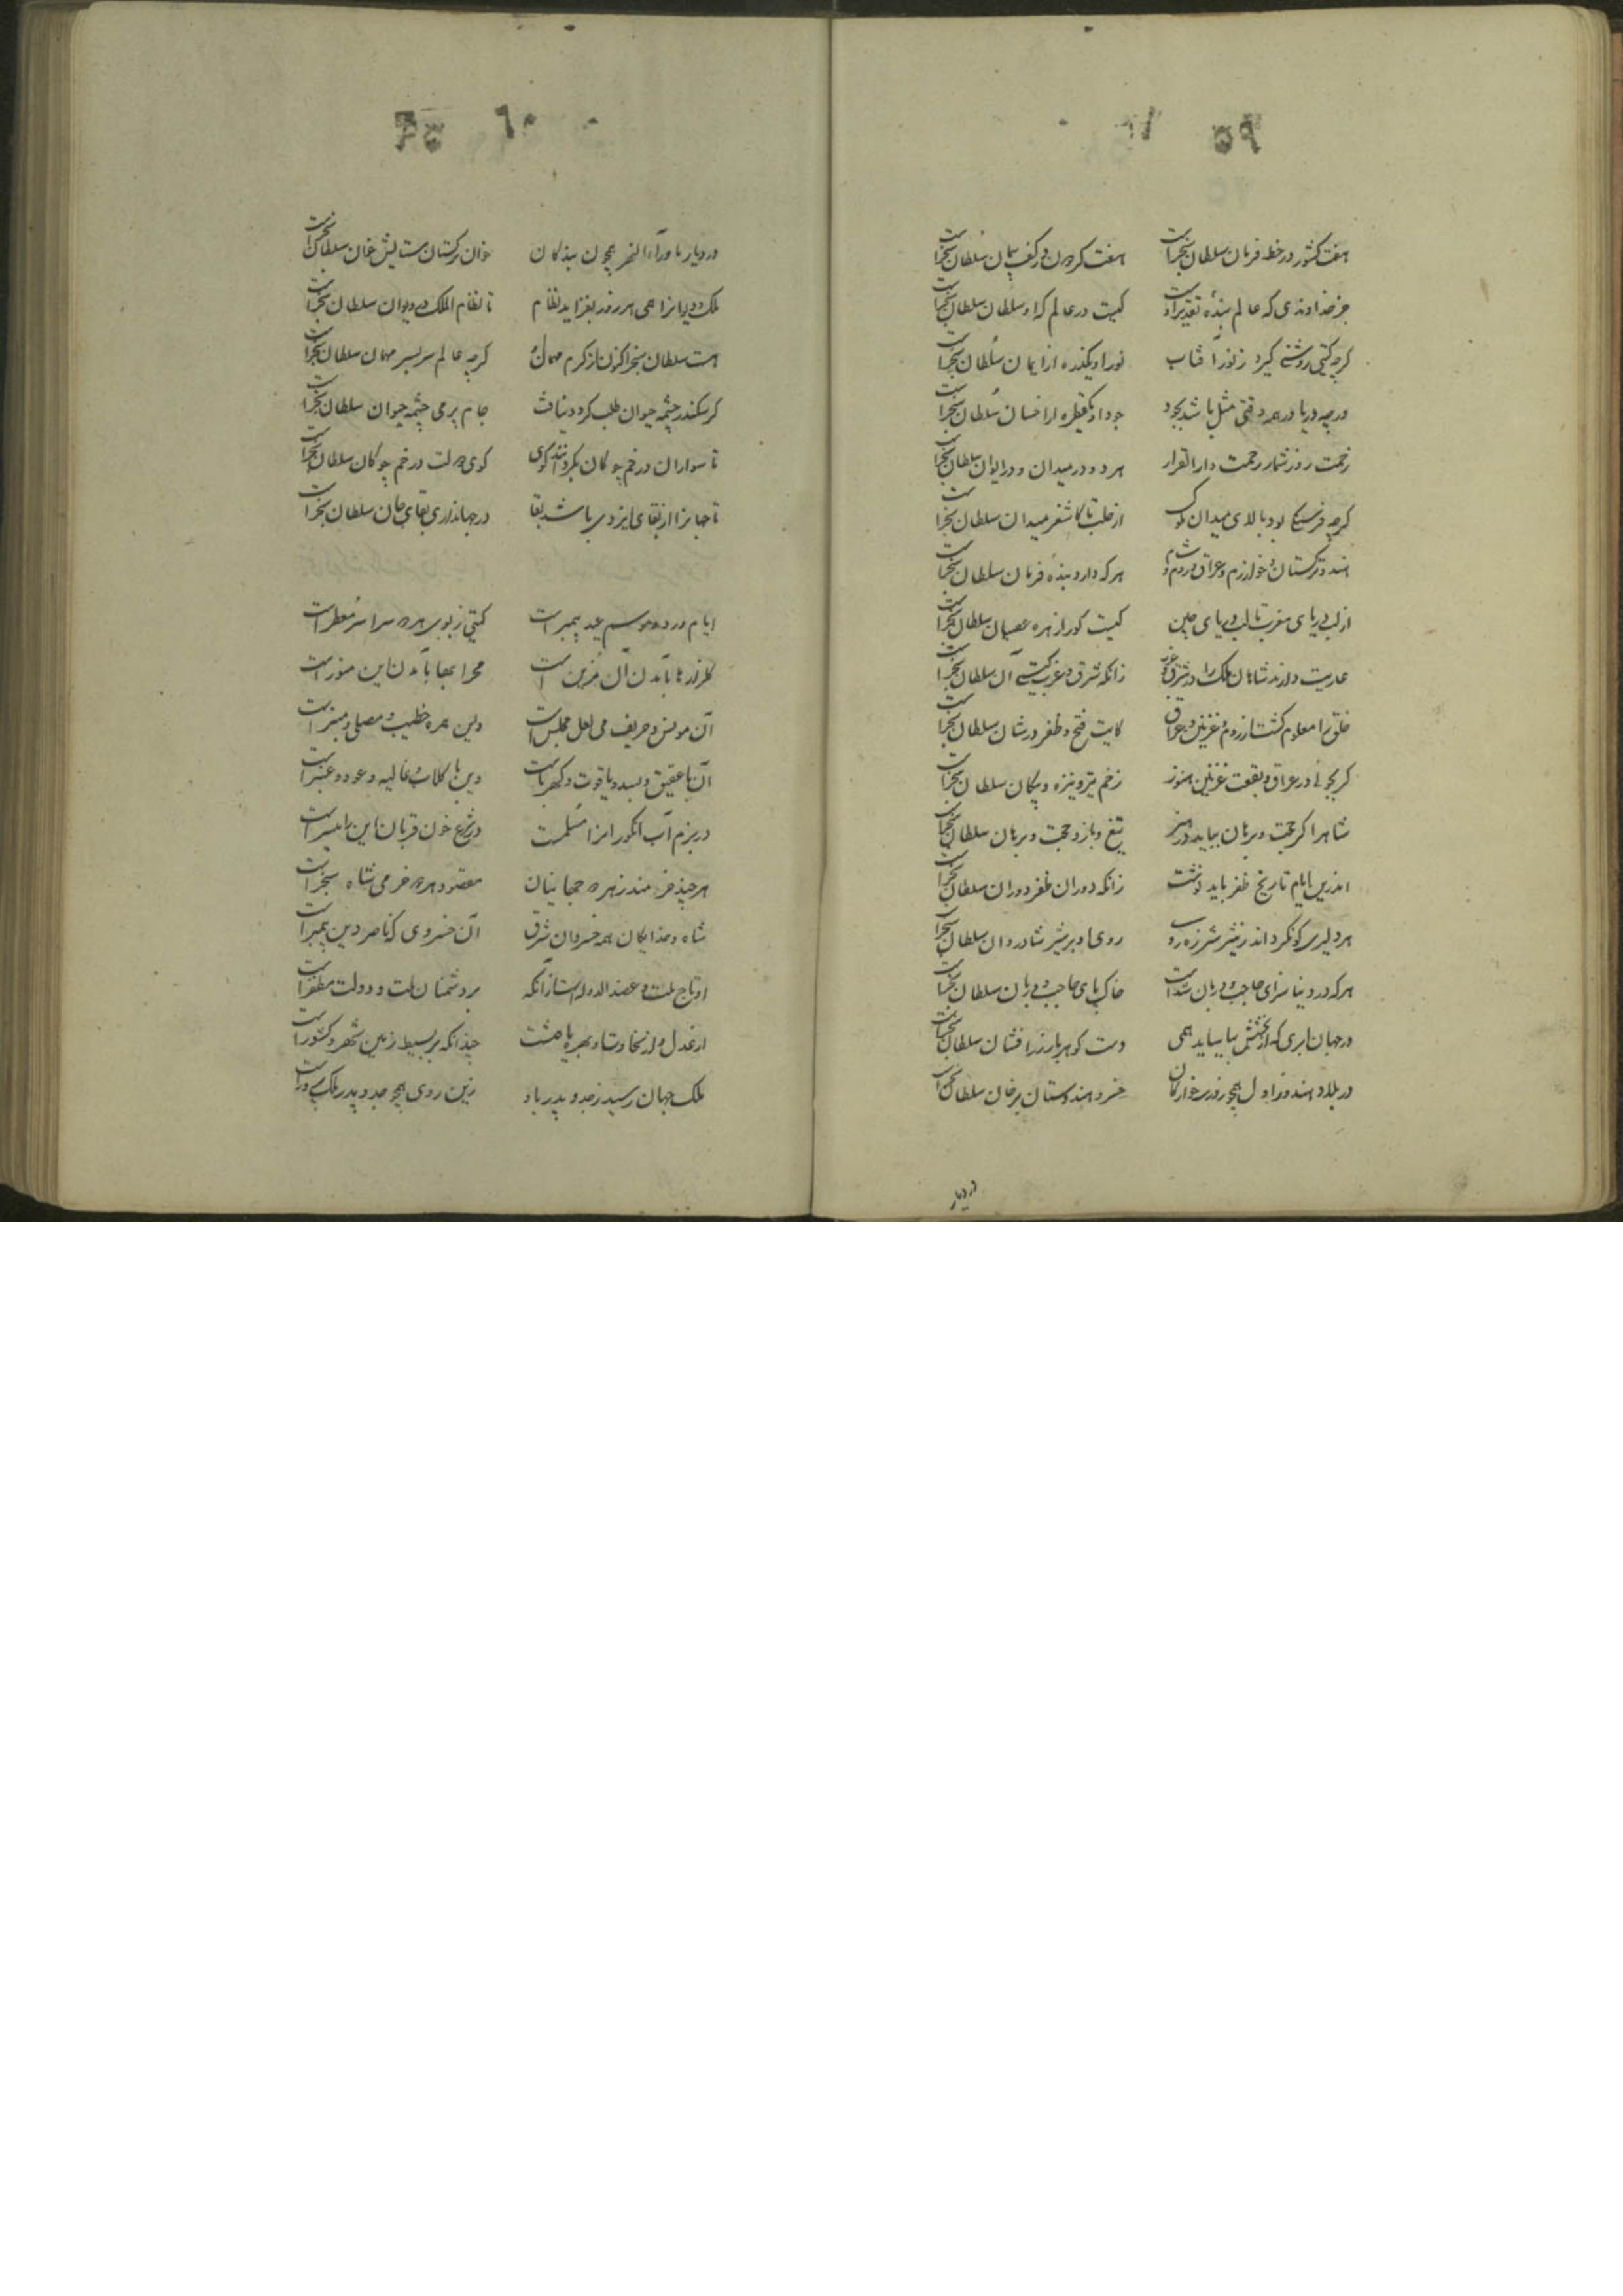 ۵۹
هفت کشور در خط فرمان سلطان سنجرست هفت کردون در کف پیمان سلطان سنجرست
جز خداوندی که عالم بنده تقدیر اوست کیست در عالم که او سلطان سلطان سنجرست
کرچه کیتی روشنی کیرد ز نور آفتاب نور او یکذره از ایمان سلطان سنجرست
ورچه دریا در همه وقتی مثل باشد بجود جود او یکقطره از احسان سلطان سنجرست
زحمت روز شمار و رحمت دار القرار هر دو در میدان و در ایوان سلطان سنجرست
کرچه فرسنکی بود بالای میدان ملوک از حلب تا کاشغر میدان سلطان سنجرست
هند و ترکستان و خوارزم و عراق و روم و شام هر که دارد بنده فرمان سلطان سنجرست
از لب دریای مغرب تا لب دریای چین کیست کو را زهره عصیان سلطان سنجرست
عاریت دارند شاهان ملک را در شرق و غرب زانکه شرق و غرب کیتی آن سلطان سنجرست
خلق را معلوم کشت از روم و غزنین و عراق کایت فتح و ظفر در شان سلطان سنجرست
کر بجوئی در عراق و بقعت غزنین هنوز زخم تیر و نیزه و پیکان سلطان سنجرست
شاه را کر حجت و برهان بباید در هنر تیغ و بازو حجت و برهان سلطان سنجرست
اندرین ایام تاریخ ظفر باید نوشت زانکه دوران ظفر دوران سلطان سنجرست
هر دلیری کو نکرداند ز شیر شرزه روی روی او بر شیر شادروان سلطان سنجرست
هر که در دنیا سزای حاجب و دربان شدست خاک پای حاجب و دربان سلطان سنجرست
در جهان ابری که از بخشش بیاساید همی دست کوهربار زرافشان سلطان سنجرست
در بلاد هند و زاول همچو رزبد خوارکان خسرو هندوستان برخان سلطان سنجرست
در دیار
۶۰
در دیار ماوراء النهر همچون بندکان خان ترکستان ستایش خان سلطان سنجرست
ملک و دین را همی هر روز بفزاید نظام تا نظام الملک در دیوان سلطان سنجرست
هست سلطان سنجر اکنون از کرم مهمان او کرچه عالم سربسر مهمان سلطان سنجرست
کر سکندر چشمه حیوان طلب کرد و نیافت جام پر می چشمه حیوان سلطان سنجرست
تا سواران در خم چوکان بکردانند کوی کوی دولت در خم چوکان سلطان سنجرست
تا جهانرا از بقای ایزدی باشد بقا در جهانداری بقای جان سلطان سنجرست
ایام ورد و موسم عید پیمبرست کیتی ز بوی هر دو سراسر معطرست
کلزارها بآمدن آن مزین است محرابها بآمدن این منورست
آن مونس و حریف می لعل مجلس است وین همره خطیب و مصلی و منبرست
آن با عقیق و بسد و یاقوت و کهرباست وین با کلاب و غالیه و عود و عنبرست
در بزم آب انکور آنرا مسلمست در شرع خون قربان این را میسرست
هرچند خرمند ز هر دو جهانیان مقصود هر دو خرمی شاه سنجرست
شاه و خدایکان همه خسروان شرق آن خسروی که ناصر دین پیمبرست
او تاج ملت و عضد الدوله است از آنکه بر دشمنان ملت و دولت مظفرست
از عدل و از سخاوت او بهره یافتست چندانکه بر بسیط زمین شهر و کشورست
ملک جهان رسید ز جد و پدر باو زین روی همچو جد و پدر ملک پرورست